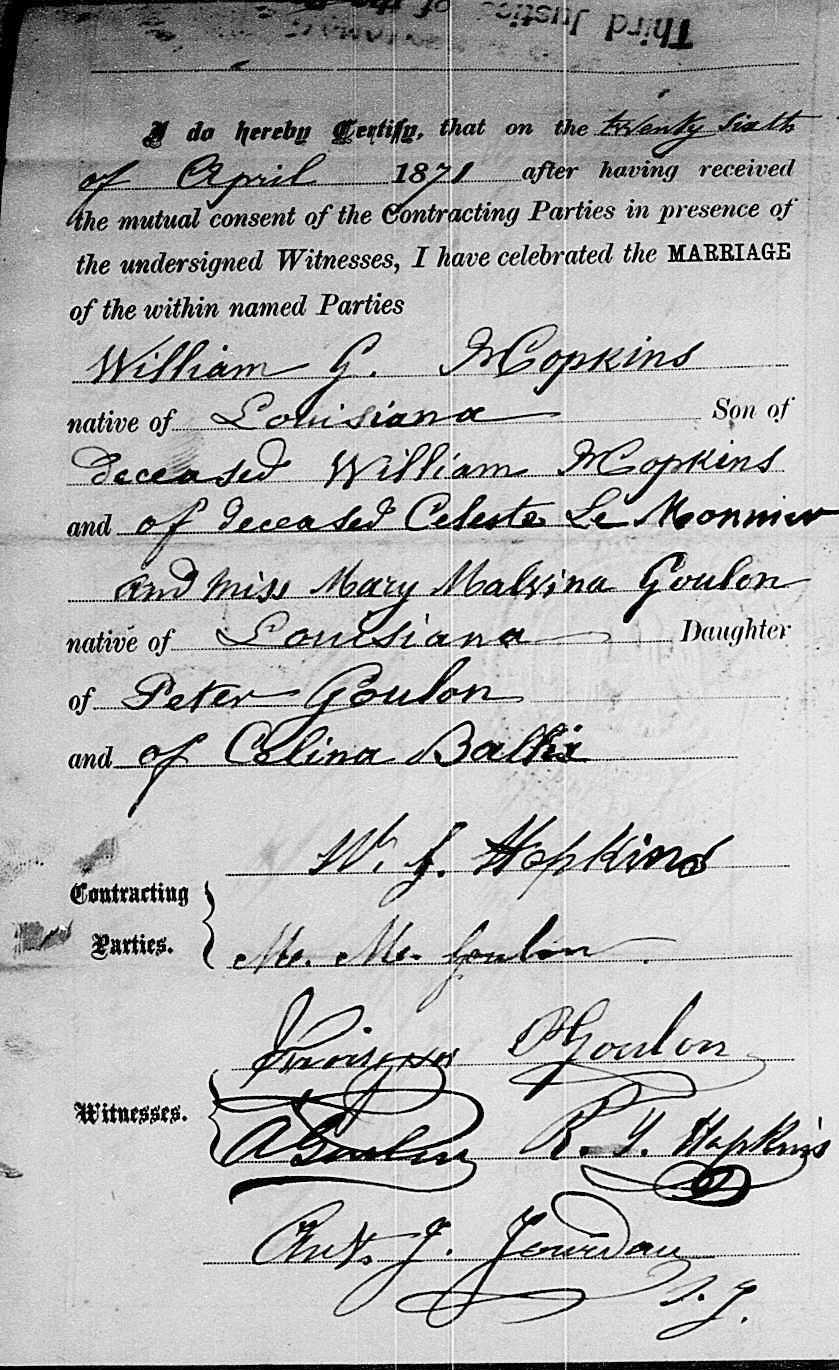 Third Justice of the
I do hereby Certify, that on the twenty sixth
of April 1871 after having received
the mutual consent of the Contracting Parties in presence of
the undersigned Witnesses, I have celebrated the MARRIAGE
of the within named Parties
William G. Hopkins
native of Louisiana Son of
deceased William Hopkins
and of deceased Celeste Le Monnier
and Miss Mary Malvina Goulon
native of Louisiana Daughter
of Peter Goulon
and of Celina
W. G. Hopkins
Contracting
Parties.
M. M. Goulon
P Goulon
Witnesses.
A Goulon R. Y. Hopkins
Ant. J. Jourdan
J.